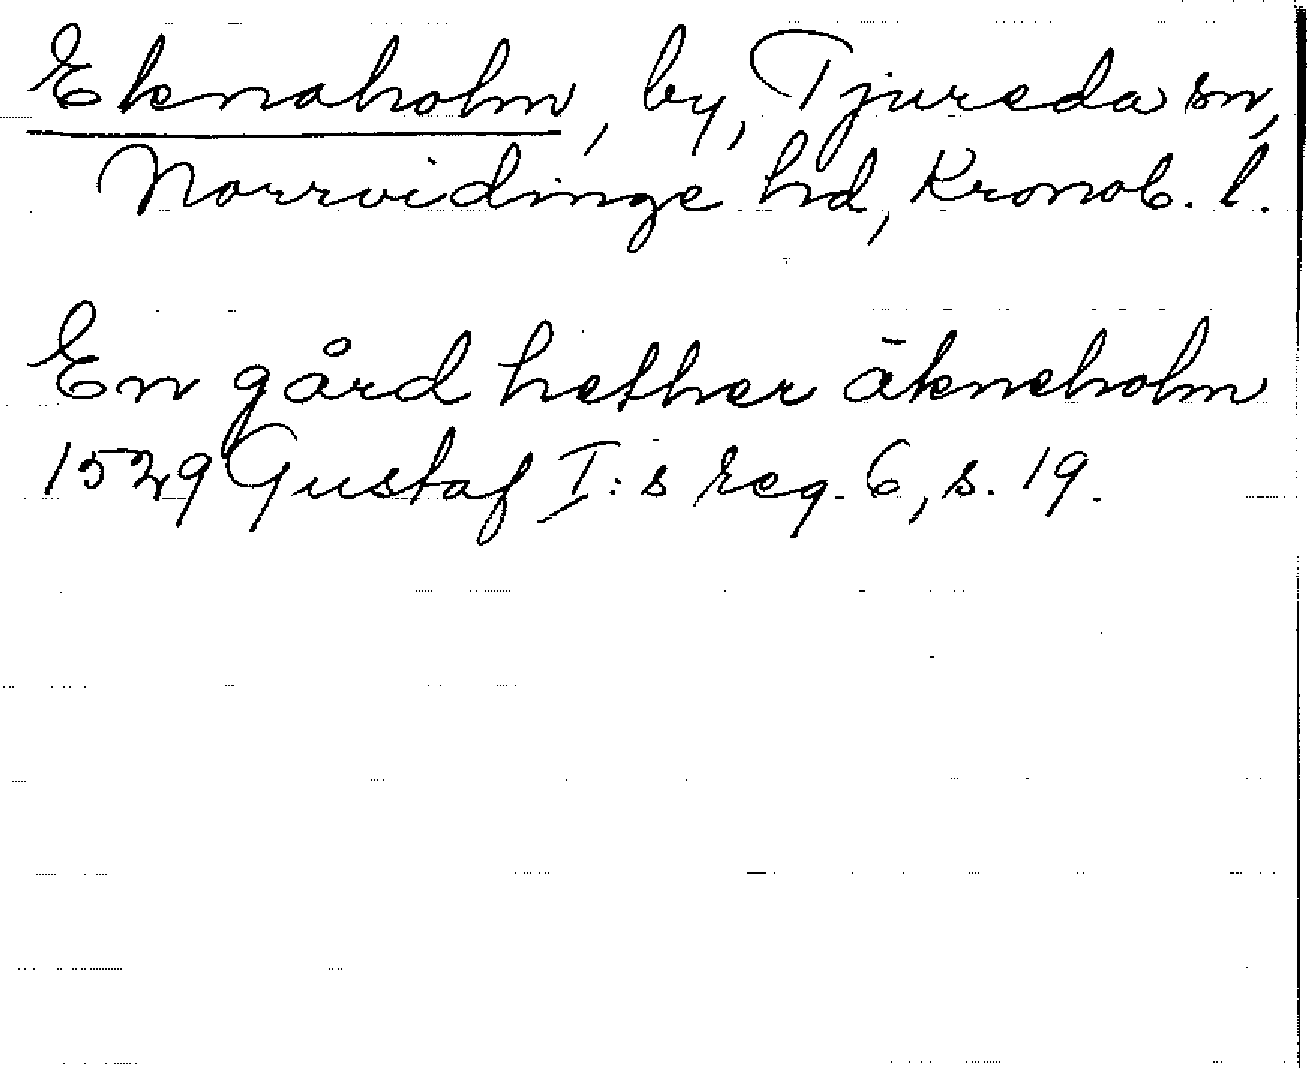 Eknaholm, by, Tjureda sn,
Norrvidinge hd, Kronob. l.
En gård hether äkneholm
1529 Gustaf I:s reg. 6, s. 19.